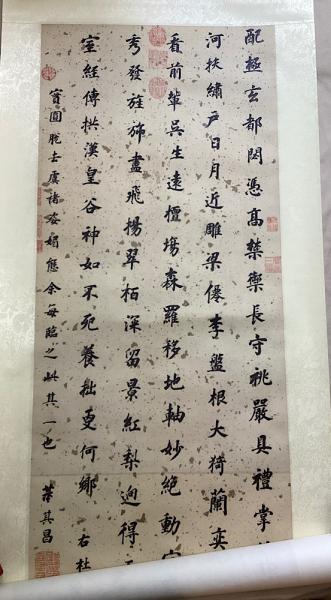 配極玄都閟憑高禁禦長守祧嚴具禮掌
河扶繡戶日月近雕梁僊李盤根大猗蘭奕
看前輩吳生遠擅塲森羅移地軸妙絕動
秀發旌斾盡飛揚翠栢深留景紅梨迥得
室經傳拱漢皇谷神如不死養拙更何鄉 右杜
寶圓脫去虞褚姿媚態余每臨之此其一也 董其昌